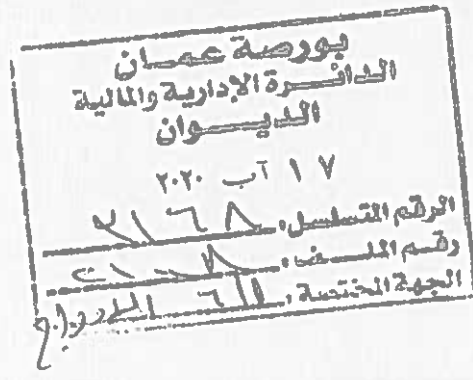 بورصة عمان
الدائرة الإدارية والمالية
الديوان
١٧ آب ٢٠٢٠
الرقم المتسلسل: ٣١٦٨
رقم الملف:
الجهة المختصة: